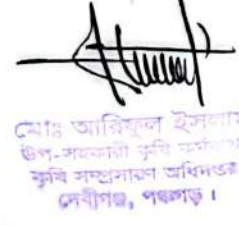 মোঃ আরিফুল ইসলাম
উপ-সহকারী কৃষি কর্মকর্তা
কৃষি সম্প্রসারণ অধিদপ্তর
দেবীগঞ্জ, পঞ্চগড় ।